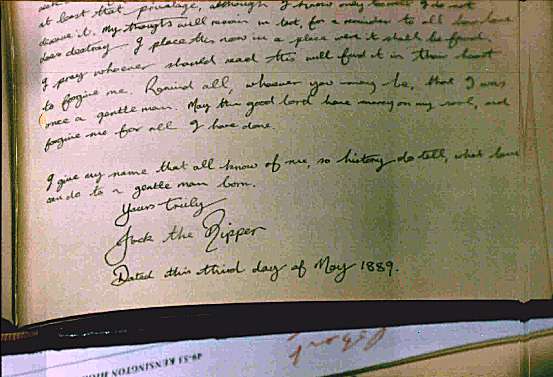 at least that privalage, although I know only [too well] I do not
deserve it. My thoughts will remain in tact, for a reminder to all how love
does destroy. I place this now in a place were it shall be found.
I pray whoever should read this will find it in their heart
to forgive me. Remind all, whoever you may be, that I was
once a gentle man. May the good lord have mercy on my soul, and
forgive me for all I have done.
I give my name that all know of me, so history do tell, what love
can do to a gentle man born.
Yours truly
Jack the Ripper
Dated this third day of May 1889.
49-53 KENSINGTON HIGH